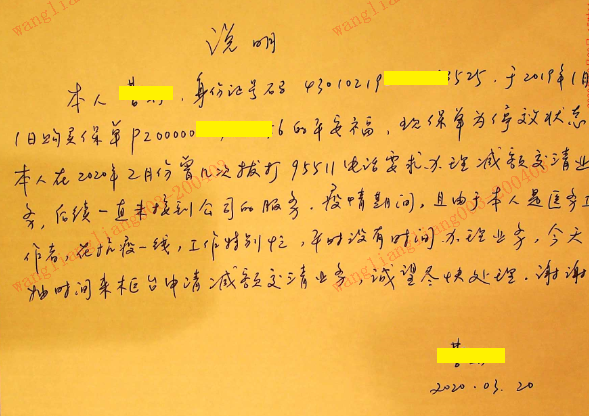 说明
本人,身份证号码 43010219 3525.于2019年1月
1日购买保单P200000 6的平安福,现保单为停效状态
本人在2020年2月份曾几次拔打95511电话要求办理减额交清业
务,后续一直未接到公司的服务.疫情期间,且由于本人是医务工
作者,在抗疫一线,工作特别忙,平时没有时间办理业务,今天
抽时间来柜台申请减额交清业务,诚望尽快处理.谢谢
2020.03.20